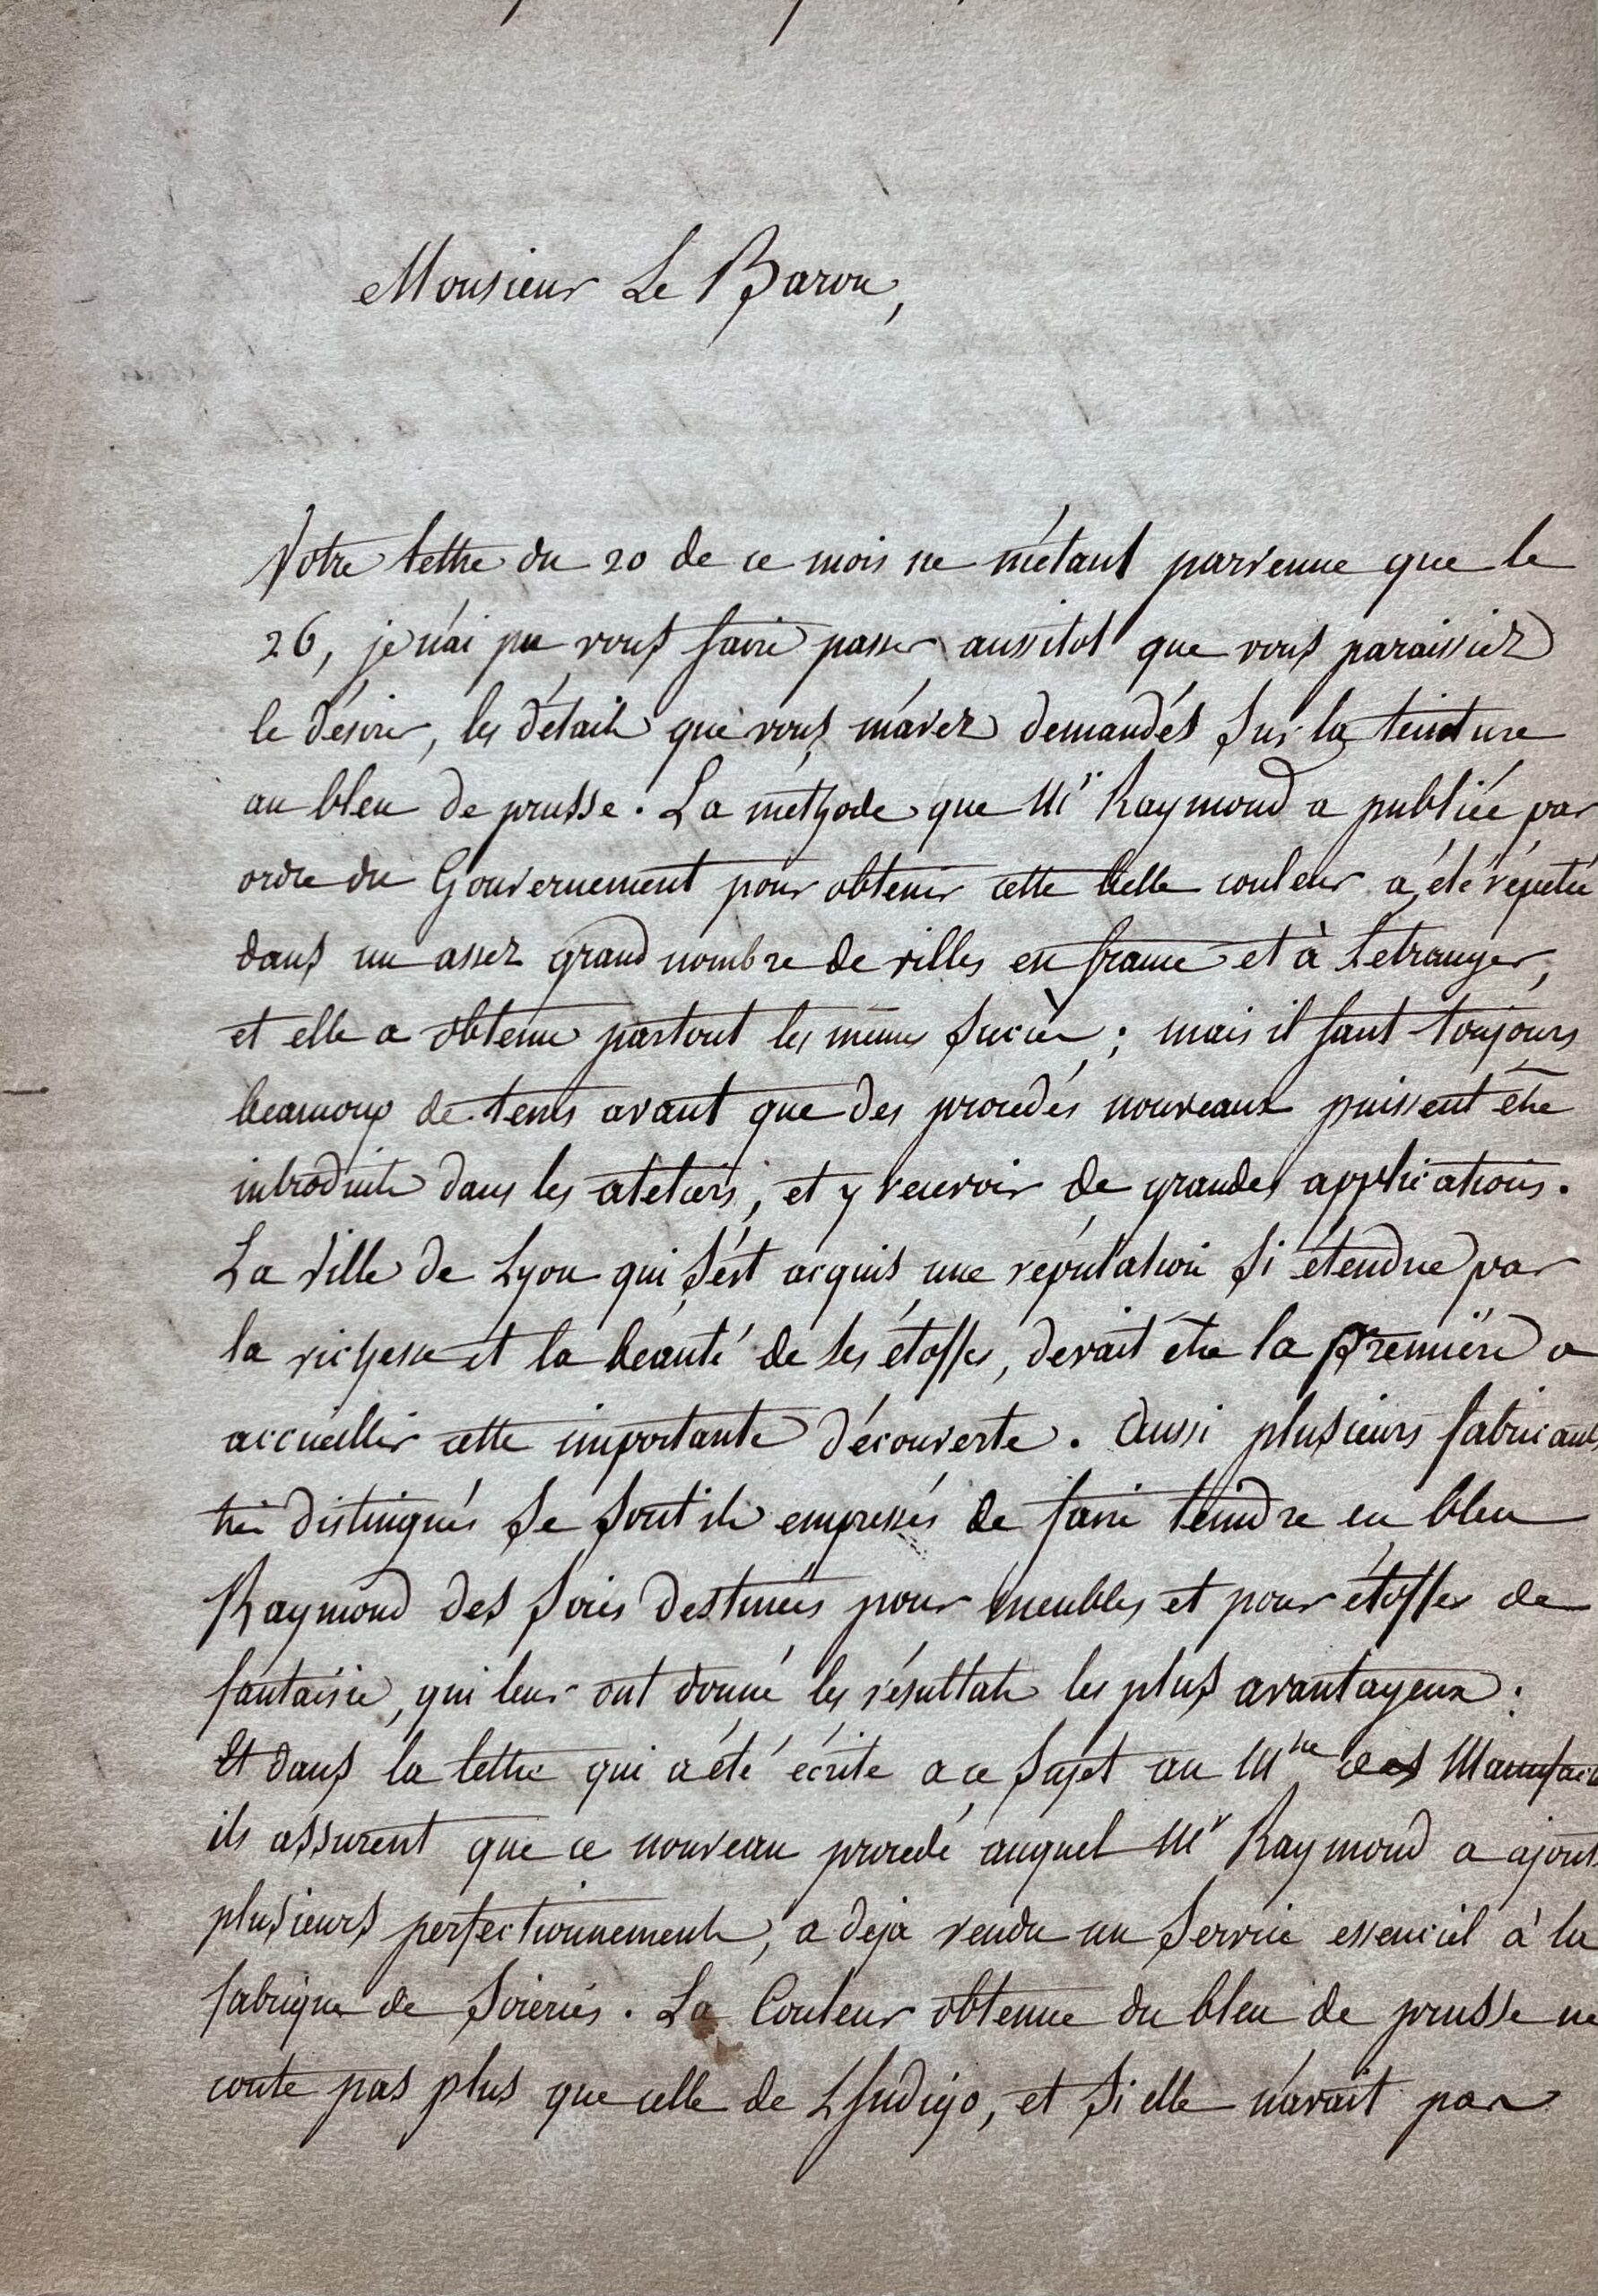 Monsieur Le Baron,
Votre lettre du 20 de ce mois ne m'étant parvenue que le
26, je n'ai pu vous faire passer aussitot que vous paraissiez
le désirer, les détails que vous m'avez demandés sur la teinture
au bleu de prusse. La méthode que Mr Raymond a publiée par
ordre du Gouvernement pour obtenir cette belle couleur a été répétée
dans un assez grand nombre de villes en france et à Letranger,
et elle a obtenu partout les mêmes succès ; mais il faut toujours
beaucoup de tems avant que des procédés nouveaux puissent être
introduits dans les ateliers, et y recevoir de grandes applications.
La Ville de Lyon qui s'est acquis une réputation si étendue par
la richesse et la beauté de ses étoffes, devait être la première a
accueillir cette importante découverte. Aussi plusieurs fabricants
très distingués se sont ils empressés de faire teindre en bleu
Raymond des soies destinées pour meubles et pour étoffes de
fantaisie, qui leur ont donné les résultats les plus avantageux :
Et dans la lettre qui a été écrite a ce sujet au Mtre des Manufact
ils assurent que ce nouveau procédé auquel Mr Raymond a ajouté
plusieurs perfectionnements, a deja rendu un service essenciel à la
fabrique de soieries. La Couleur obtenue du bleu de prusse ne
coute pas plus que celle de L'Indigo, et si elle n'avait par